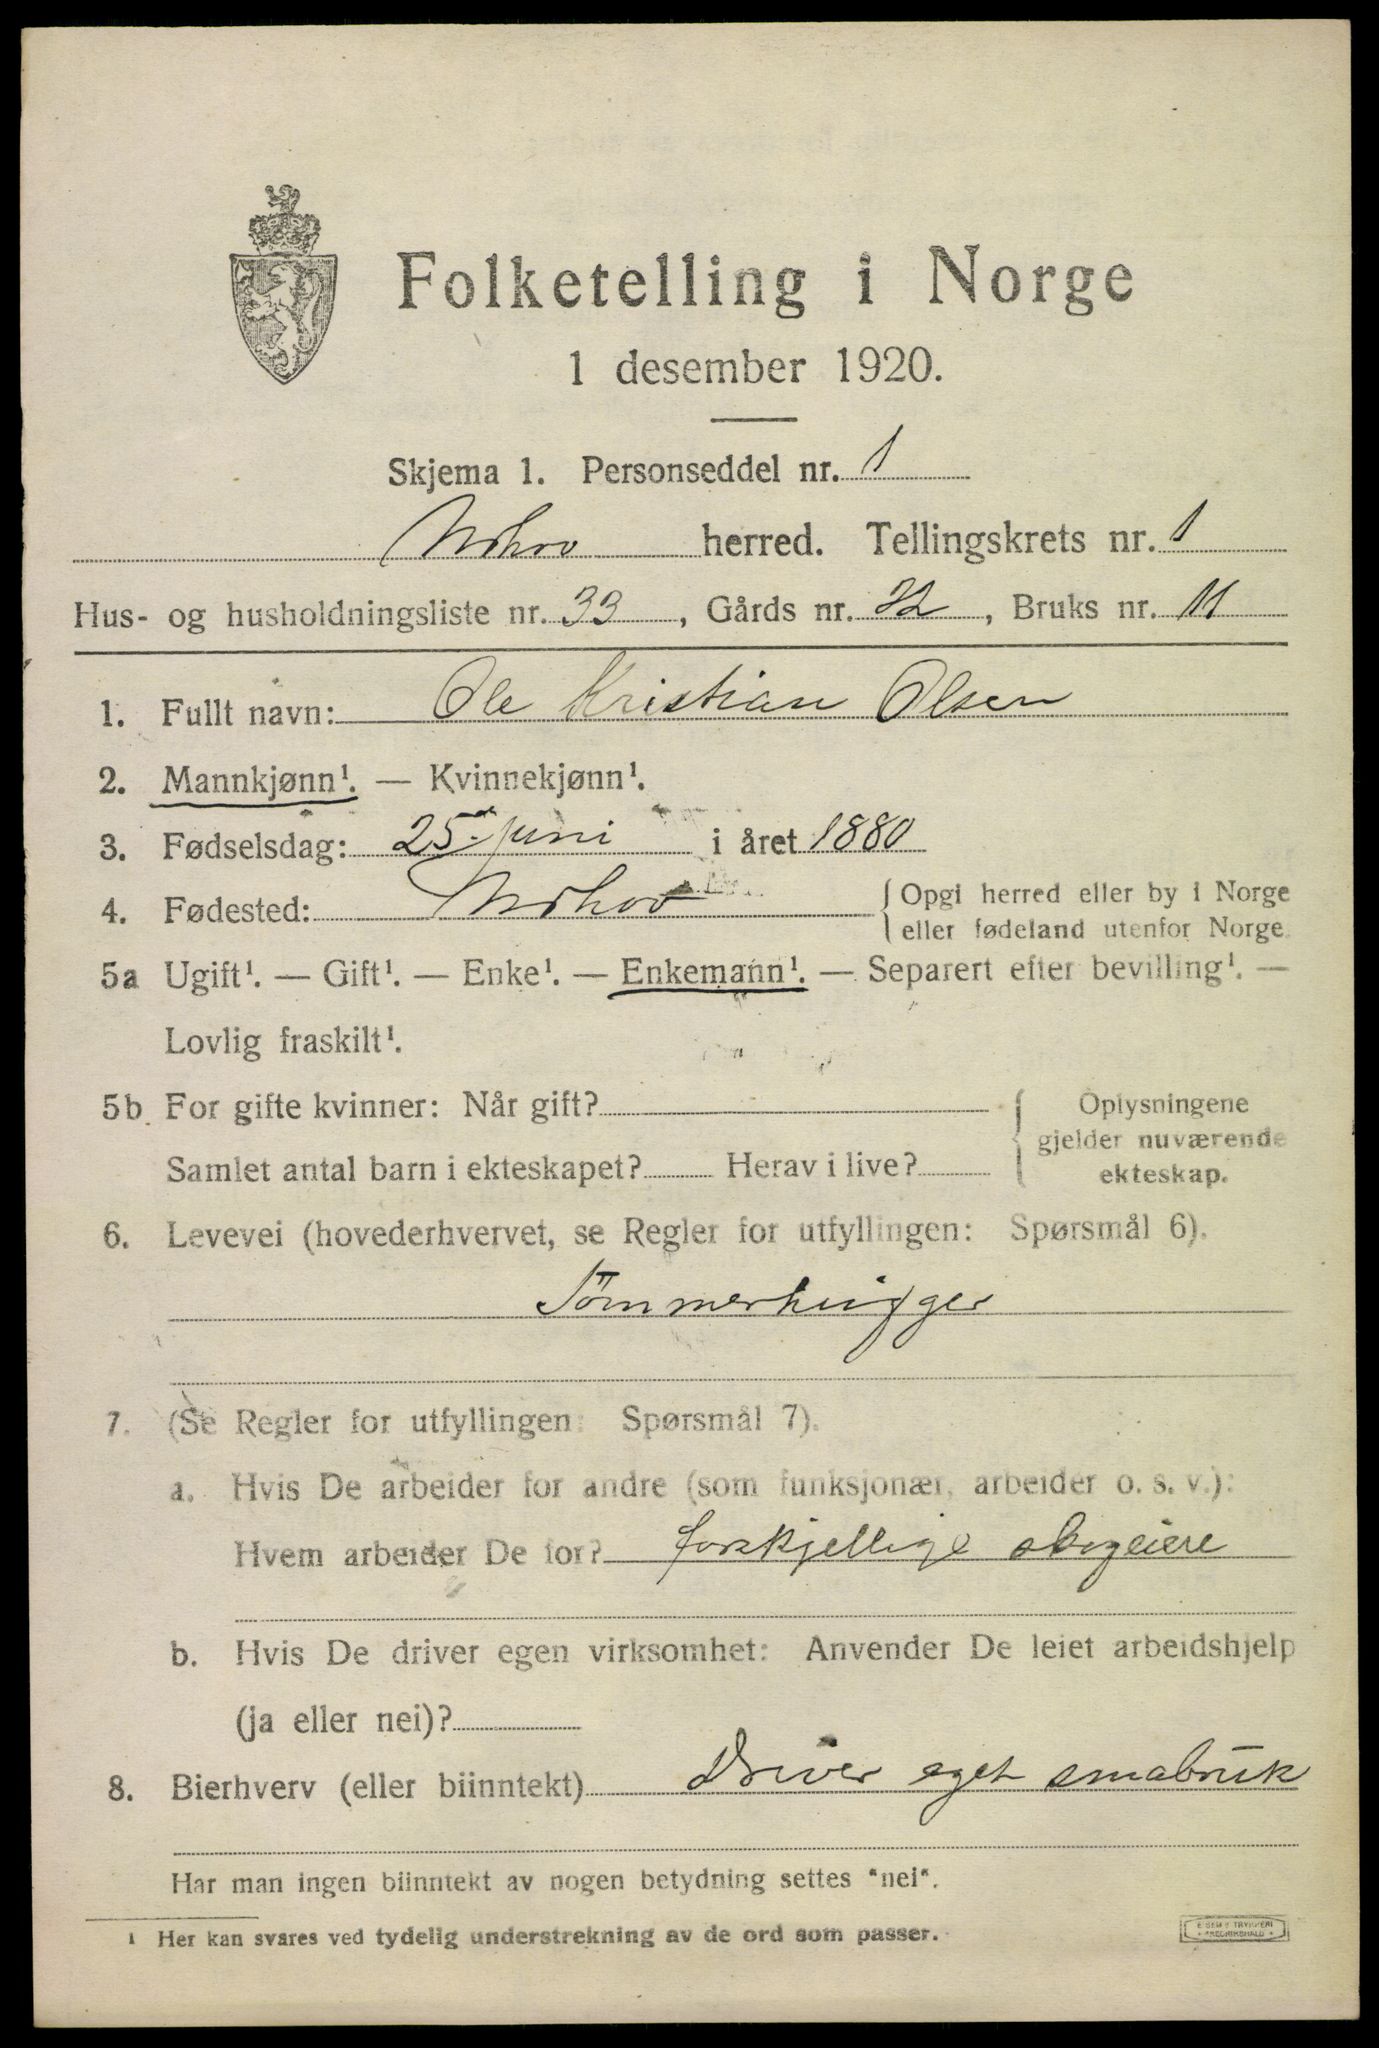 Folketelling i Norge
1 desember 1920.
Skjema 1. Personseddel nr. 1
herred. Tellingskrets nr. 1
Hus- og husholdningsliste nr. 33, Gårds nr. 22, Bruks nr. 11
1. Fullt navn: Ole Kristian Olsen
2. Mannkjønn¹. — Kvinnekjønn¹.
3. Fødselsdag: 25. juni i året 1880
4. Fødested: { Opgi herred eller by i Norge
eller fødeland utenfor Norge.
5a Ugift¹. — Gift¹. — Enke¹. — Enkemann¹. — Separert efter bevilling¹. —
Lovlig fraskilt¹.
5b For gifte kvinner: Når gift? { Oplysningene
gjelder nuværende
Samlet antal barn i ekteskapet? Herav i live? ekteskap.
6. Levevei (hovederhvervet, se Regler for utfyllingen: Spørsmål 6).
Tömmerhugger
7. (Se Regler for utfyllingen: Spørsmål 7).
a. Hvis De arbeider for andre (som funksjonær, arbeider o. s. v.):
Hvem arbeider De for? forskjellige skogeiere
b. Hvis De driver egen virksomhet: Anvender De leiet arbeidshjelp
(ja eller nei)?
8. Bierhverv (eller biinntekt) Driver eget smabruk
Har man ingen biinntekt av nogen betydning settes "nei".
¹ Her kan svares ved tydelig understrekning av de ord som passer.